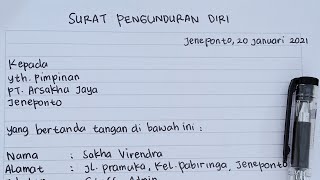 SURAT PENGUNDURAN DIRI
Jeneponto, 20 Januari 2021
Kepada
Yth. Pimpinan
PT. Arsakha Jaya
Jeneponto
Yang bertanda tangan di bawah ini :
Nama : Sakha Virendra
Alamat : Jl. Pramuka, Kel. Pabiringa, Jeneponto